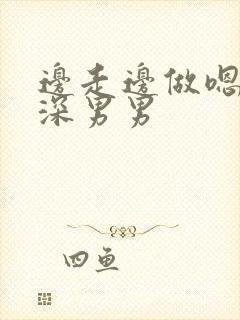 邊走邊做嗯
深男男
四鱼